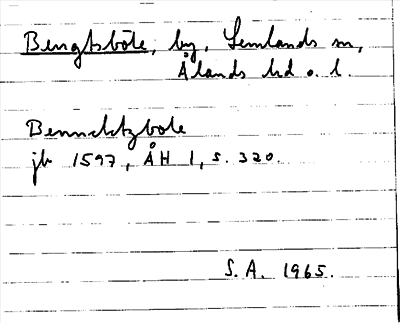 Bengtsböle, by, Lemlands sn,
Ålands hd o. l.
Bennucktzbole
jb 1597, ÅH 1, s. 320.
S. A. 1965.